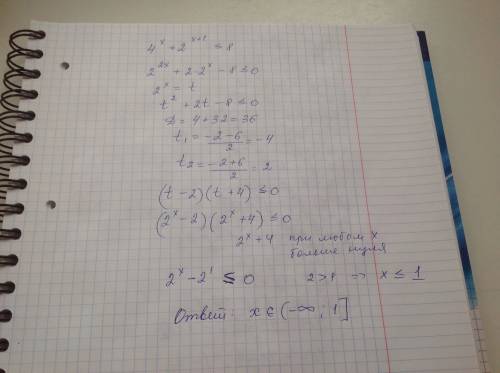 4^x + 2^(x+1) ≤ 8
2^(2x) + 2·2^x − 8 ≤ 0
2^x = t
t^2 + 2t − 8 ≤ 0
D = 4 + 32 = 36
t₁ = (−2−6)/2 = −4
t₂ = (−2+6)/2 = 2
(t − 2)(t + 4) ≤ 0
(2^x − 2)(2^x + 4) ≤ 0
2^x + 4 при любом x
больше нуля
2^x − 2^1 ≤ 0 2 > 1 ⇒ x ≤ 1
Ответ: x ∈ (−∞; 1]